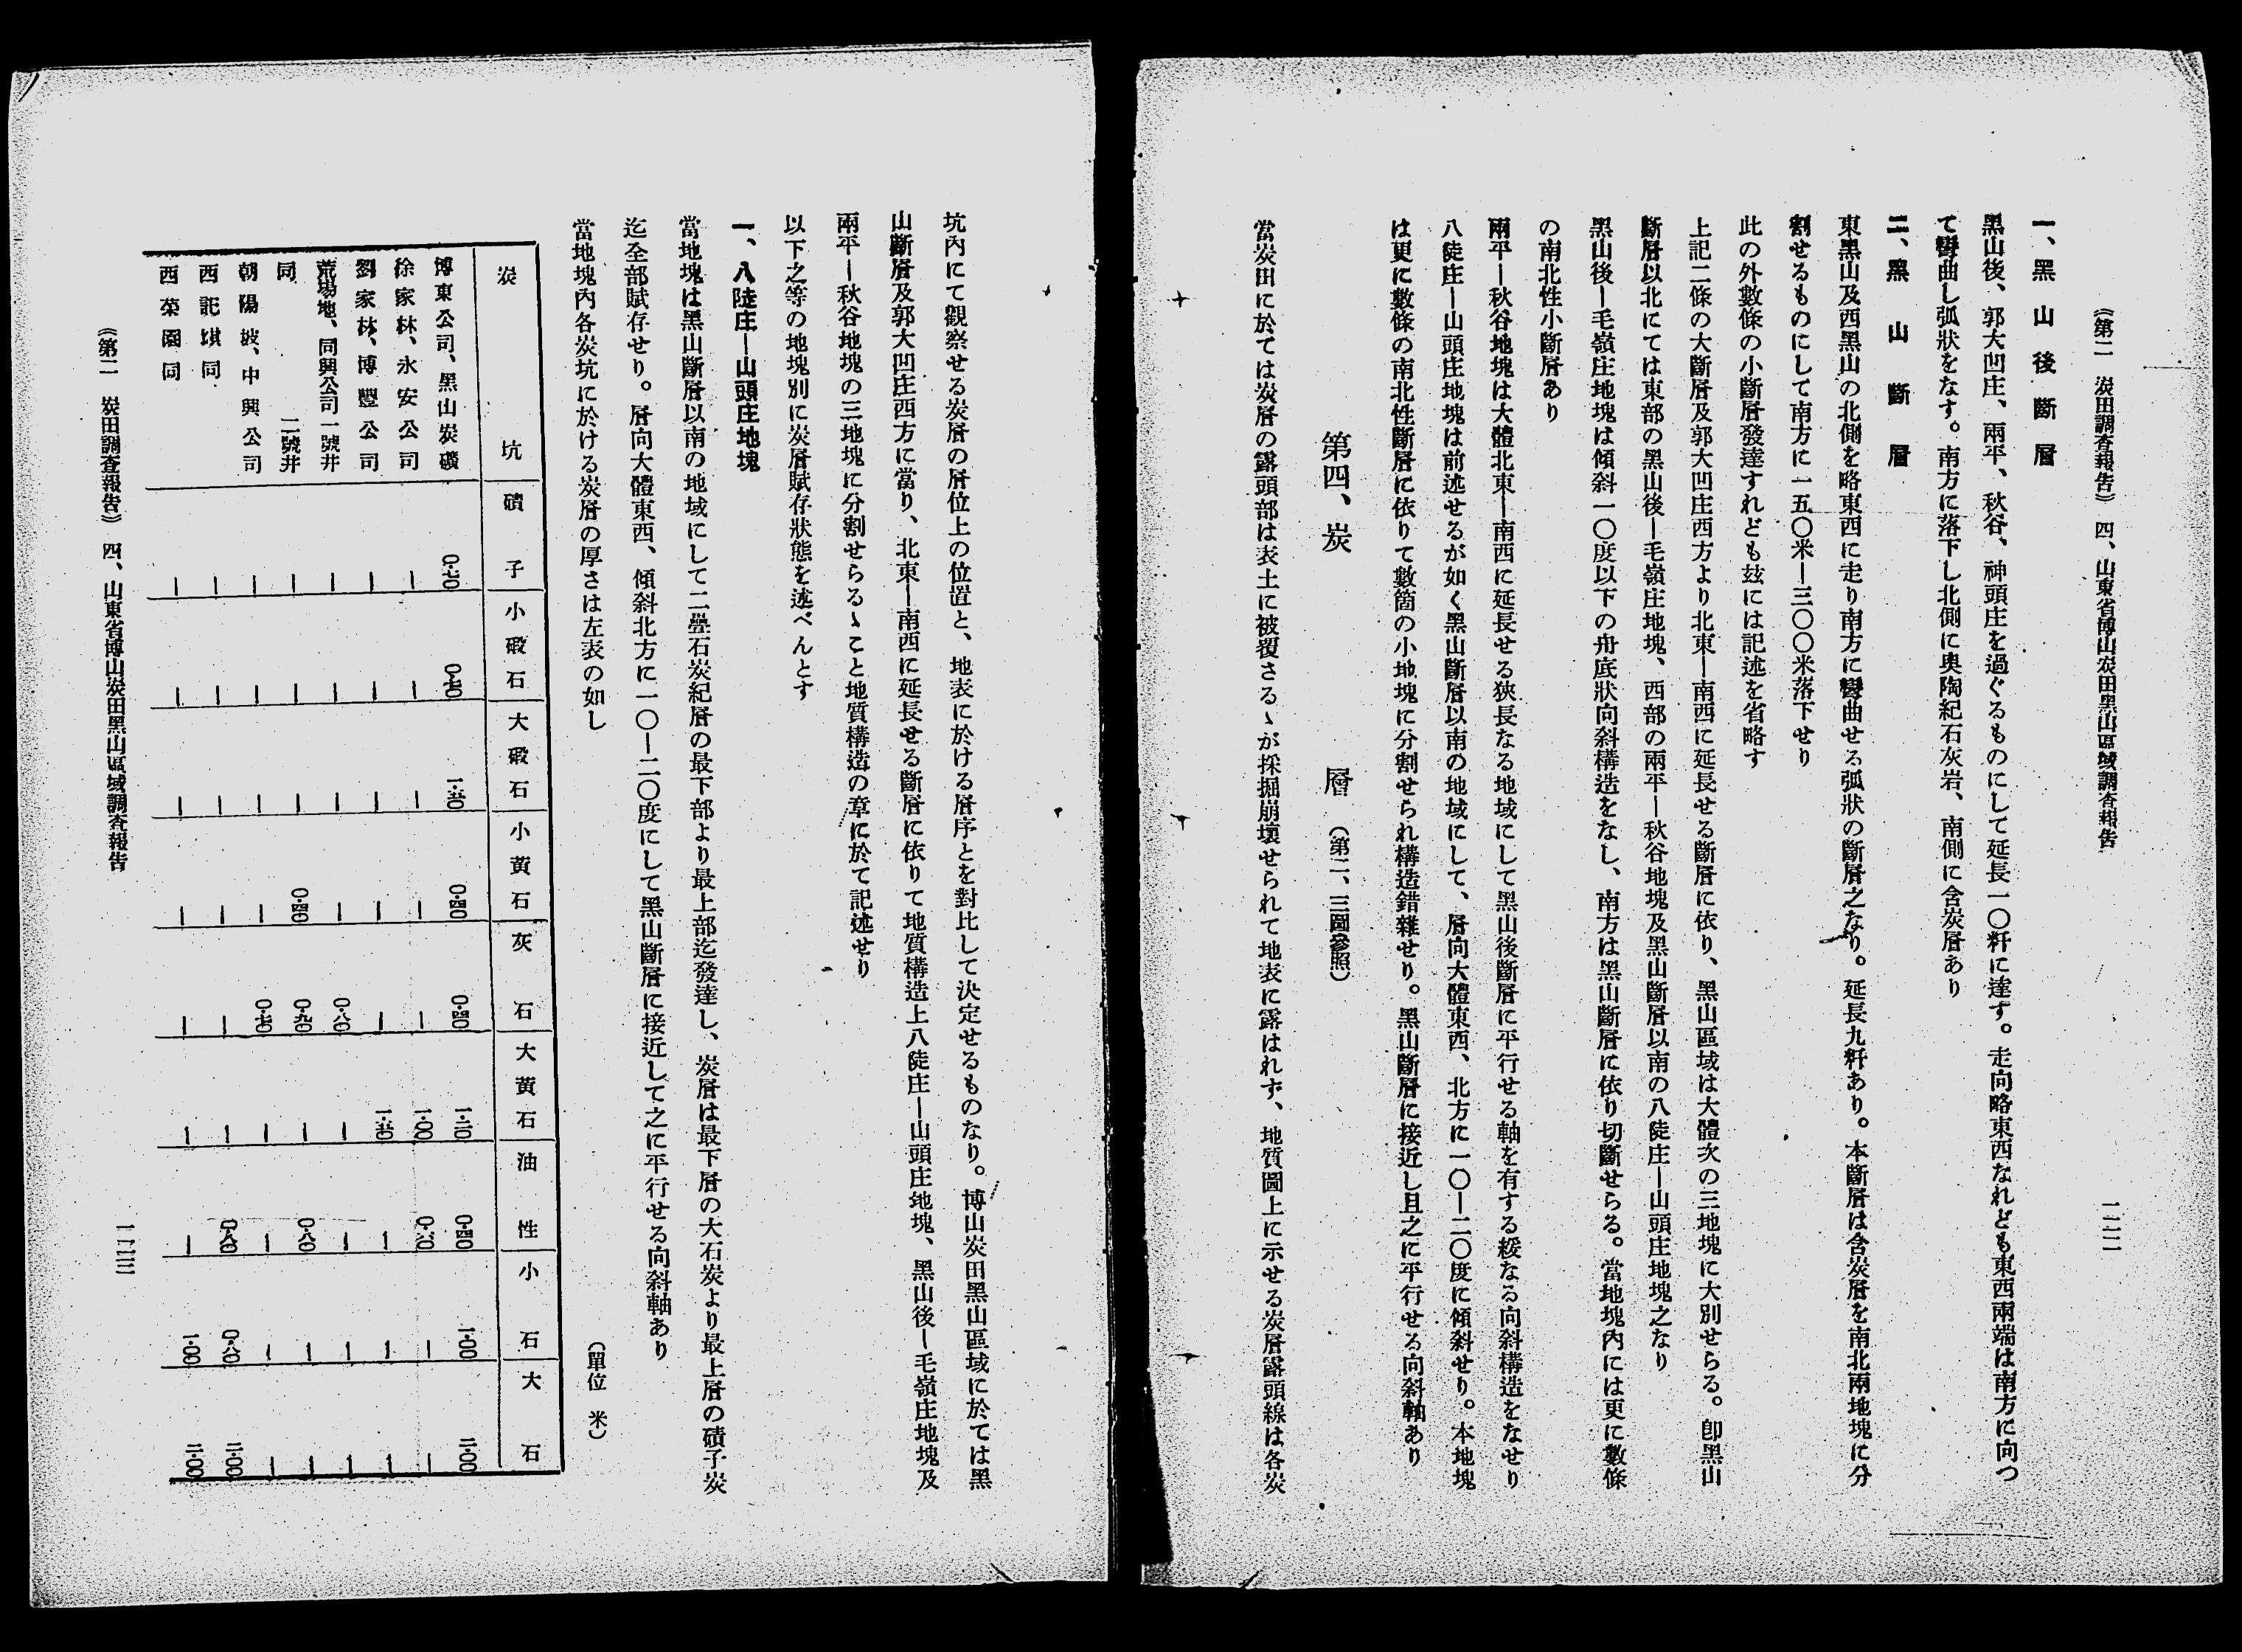 《第二 炭田調査報告》 四、山東省博山炭田黑山區域調査報告
一二二
一、黑山後斷層
黑山後、郭大凹庄、兩平、秋谷、神頭庄を過ぐるものにして延長一〇粁に達す。走向略東西なれども東西兩端は南方に向つ
て彎曲し弧狀をなす。南方に落下し北側に奥陶紀石灰岩、南側に含炭層あり
二、黑山斷層
東黑山及西黑山の北側を略東西に走り南方に彎曲せる弧狀の斷層之なり。延長九粁あり。本斷層は含炭層を南北兩地塊に分
割せるものにして南方に一五〇米―三〇〇米落下せり
此の外數條の小斷層發達すれども玆には記述を省略す
上記二條の大斷層及郭大凹庄西方より北東―南西に延長せる斷層に依り、黑山區域は大體次の三地塊に大別せらる。卽黑山
斷層以北にては東部の黑山後―毛嶺庄地塊、西部の兩平―秋谷地塊及黑山斷層以南の八徒庄―山頭庄地塊之なり
黑山後―毛嶺庄地塊は傾斜一〇度以下の舟底狀向斜構造をなし、南方は黑山斷層に依り切斷せらる。當地塊內には更に數條
の南北性小斷層あり
兩平―秋谷地塊は大體北東―南西に延長せる狹長なる地域にして黑山後斷層に平行せる軸を有する緩なる向斜構造をなせり
八徒庄―山頭庄地塊は前述せるが如く黑山斷層以南の地域にして、層向大體東西、北方に一〇―二〇度に傾斜せり。本地塊
は更に數條の南北性斷層に依りて數箇の小地塊に分割せられ構造錯雜せり。黑山斷層に接近し且之に平行せる向斜軸あり
第四、炭層 （第二、三圖參照）
當炭田に於ては炭層の露頭部は表土に被覆さるゝが採掘崩壞せられて地表に露はれず、地質圖上に示せる炭層露頭線は各炭
坑內にて觀察せる炭層の層位上の位置と、地表に於ける層序とを對比して決定せるものなり。博山炭田黑山區域に於ては黑
山斷層及郭大凹庄西方に當り、北東―南西に延長せる斷層に依りて地質構造上八徒庄―山頭庄地塊、黑山後―毛嶺庄地塊及
兩平―秋谷地塊の三地塊に分割せらるゝこと地質構造の章に於て記述せり
以下之等の地塊別に炭層賦存狀態を述べんとす
一、八陡庄―山頭庄地塊
當地塊は黑山斷層以南の地域にして二疊石炭紀層の最下部より最上部迄發達し、炭層は最下層の大石炭より最上層の磧子炭
迄全部賦存せり。層向大體東西、傾斜北方に一〇―二〇度にして黑山斷層に接近して之に平行せる向斜軸あり
當地塊內各炭坑に於ける炭層の厚さは左表の如し
（單位 米）
炭坑 磧子 小煅石 大煅石 小黃石 灰石 大黃石 油性 小石 大石
博東公司、黑山炭礦 〇・七〇 〇・七〇 一・五〇 〇・四〇 〇・四〇 一・二〇 〇・四〇 一・〇〇 二・〇〇
徐家林、永安公司 ― ― ― ― ― 一・〇〇 〇・六〇 ― ―
劉家林、博豐公司 ― ― ― ― ― 一・五〇 ― ― ―
荒場地、同興公司一號井 ― ― ― ― 〇・八〇 ― ― ― ―
同 二號井 ― ― ― 〇・四〇 〇・九〇 ― 〇・八〇 ― ―
朝陽坡、中興公司 ― ― ― ― 〇・七〇 ― ― ― ―
西記堪同 ― ― ― ― ― ― 〇・八〇 〇・八〇 二・〇〇
西榮園同 ― ― ― ― ― ― ― 一・〇〇 二・〇〇
《第二 炭田調査報告》 四、山東省博山炭田黑山區域調査報告
一二三